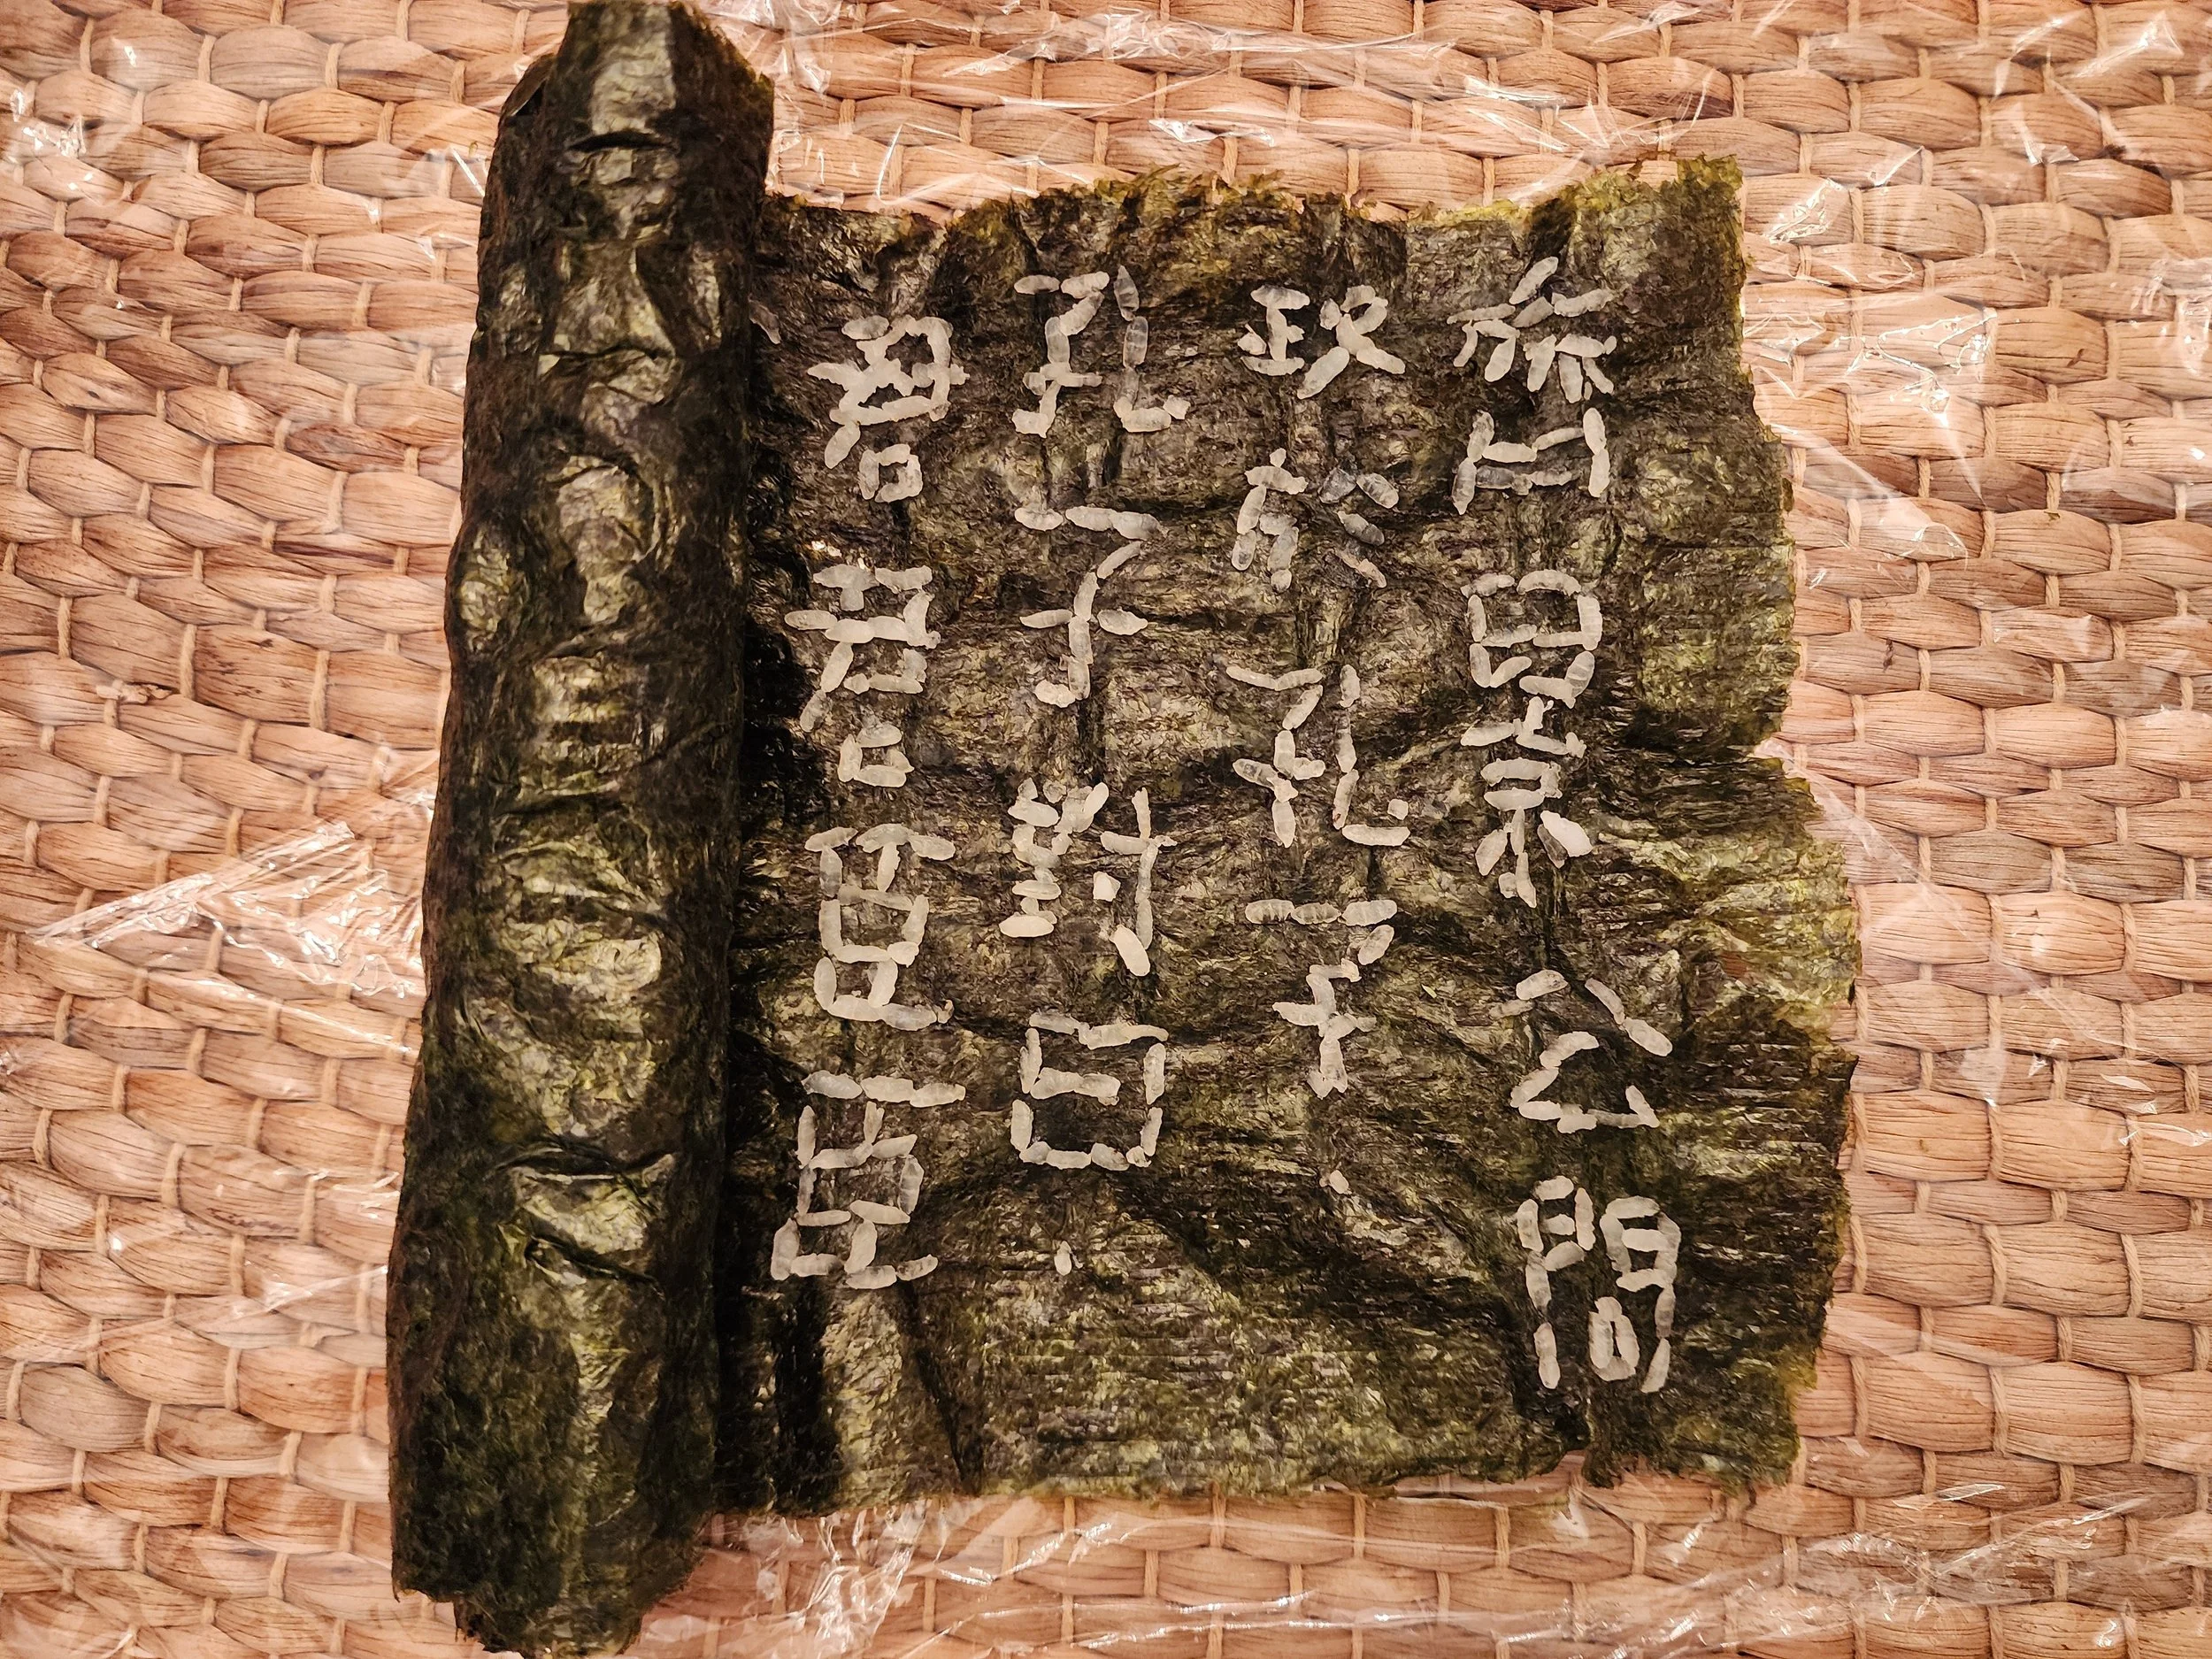 齊景公問
政於孔子
孔子對曰
君君臣臣